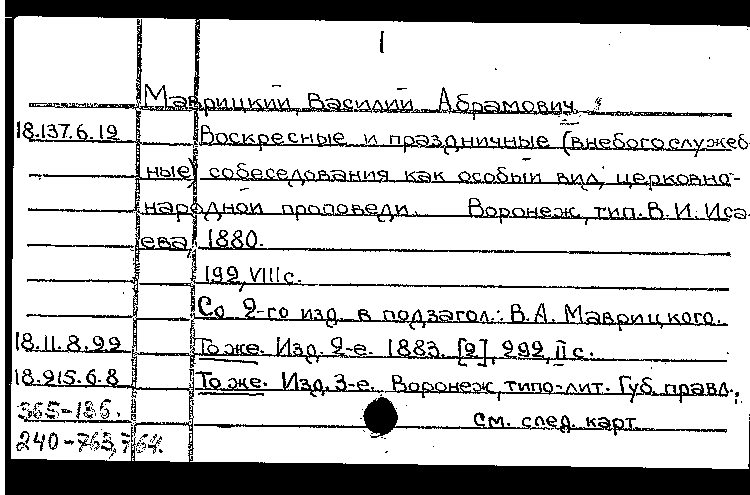 1
Маврицкий, Василий Абрамович
18.137.6.19 Воскресные и праздничные (внебогослужеб-
ные) собеседования как особый вид церковно-
народной проповеди. Воронеж, тип. В. И. Иса-
ева, 1880.
199, VIII с.
Со 2-го изд. в подзагол.: В. А. Маврицкого.
18.11.8.99 То же. Изд. 2-е. 1883. [2], 292, II с.
18.215.6.8 То же. Изд. 3-е. Воронеж, типо-лит. Губ. правл.,
365-186. см. след. карт.
240-763,764.